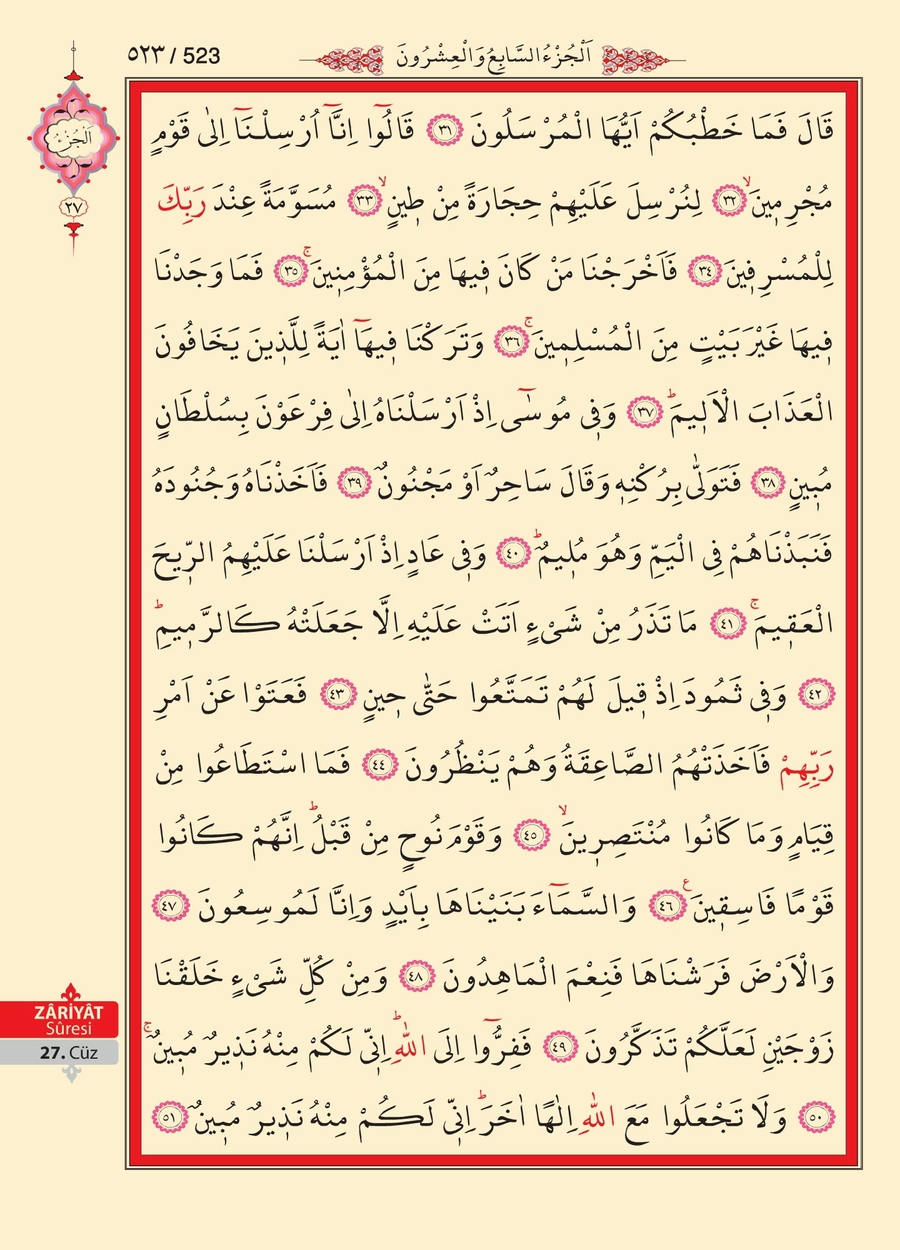 ٥٢٣ / 523
اَلْجُزْءُ السَّابِعُ وَالْعِشْرُونَ
اَلْجُزْءُ
٢٧
قَالَ فَمَا خَطْبُكُمْ اَيُّهَا الْمُرْسَلُونَ ﴿٣١﴾ قَالُٓوا اِنَّٓا اُرْسِلْنَٓا اِلٰى قَوْمٍ
مُجْرِم۪ينَۙ ﴿٣٢﴾ لِنُرْسِلَ عَلَيْهِمْ حِجَارَةً مِنْ ط۪ينٍۙ ﴿٣٣﴾ مُسَوَّمَةً عِنْدَ رَبِّكَ
لِلْمُسْرِف۪ينَ ﴿٣٤﴾ فَاَخْرَجْنَا مَنْ كَانَ ف۪يهَا مِنَ الْمُؤْمِن۪ينَۚ ﴿٣٥﴾ فَمَا وَجَدْنَا
ف۪يهَا غَيْرَ بَيْتٍ مِنَ الْمُسْلِم۪ينَۚ ﴿٣٦﴾ وَتَرَكْنَا ف۪يهَٓا اٰيَةً لِلَّذ۪ينَ يَخَافُونَ
الْعَذَابَ الْاَل۪يمَۜ ﴿٣٧﴾ وَف۪ي مُوسٰٓى اِذْ اَرْسَلْنَاهُ اِلٰى فِرْعَوْنَ بِسُلْطَانٍ
مُب۪ينٍ ﴿٣٨﴾ فَتَوَلّٰى بِرُكْنِه۪ وَقَالَ سَاحِرٌ اَوْ مَجْنُونٌ ﴿٣٩﴾ فَاَخَذْنَاهُ وَجُنُودَهُ
فَنَبَذْنَاهُمْ فِي الْيَمِّ وَهُوَ مُل۪يمٌۜ ﴿٤٠﴾ وَف۪ي عَادٍ اِذْ اَرْسَلْنَا عَلَيْهِمُ الرّ۪يحَ
الْعَق۪يمَۚ ﴿٤١﴾ مَا تَذَرُ مِنْ شَيْءٍ اَتَتْ عَلَيْهِ اِلَّا جَعَلَتْهُ كَالرَّم۪يمِۜ
﴿٤٢﴾ وَف۪ي ثَمُودَ اِذْ ق۪يلَ لَهُمْ تَمَتَّعُوا حَتّٰى ح۪ينٍ ﴿٤٣﴾ فَعَتَوْا عَنْ اَمْرِ
رَبِّهِمْ فَاَخَذَتْهُمُ الصَّاعِقَةُ وَهُمْ يَنْظُرُونَ ﴿٤٤﴾ فَمَا اسْتَطَاعُوا مِنْ
قِيَامٍ وَمَا كَانُوا مُنْتَصِر۪ينَۙ ﴿٤٥﴾ وَقَوْمَ نُوحٍ مِنْ قَبْلُۜ اِنَّهُمْ كَانُوا
قَوْمًا فَاسِق۪ينَ۟ ﴿٤٦﴾ وَالسَّمَٓاءَ بَنَيْنَاهَا بِاَيْدٍ وَاِنَّا لَمُوسِعُونَ ﴿٤٧﴾
وَالْاَرْضَ فَرَشْنَاهَا فَنِعْمَ الْمَاهِدُونَ ﴿٤٨﴾ وَمِنْ كُلِّ شَيْءٍ خَلَقْنَا
زَوْجَيْنِ لَعَلَّكُمْ تَذَكَّرُونَ ﴿٤٩﴾ فَفِرُّٓوا اِلَى اللّٰهِۜ اِنّ۪ي لَكُمْ مِنْهُ نَذ۪يرٌ مُب۪ينٌۚ
﴿٥٠﴾ وَلَا تَجْعَلُوا مَعَ اللّٰهِ اِلٰهًا اٰخَرَۜ اِنّ۪ي لَكُمْ مِنْهُ نَذ۪يرٌ مُب۪ينٌ ﴿٥١﴾
ZÂRİYÂT
Sûresi
27. Cüz